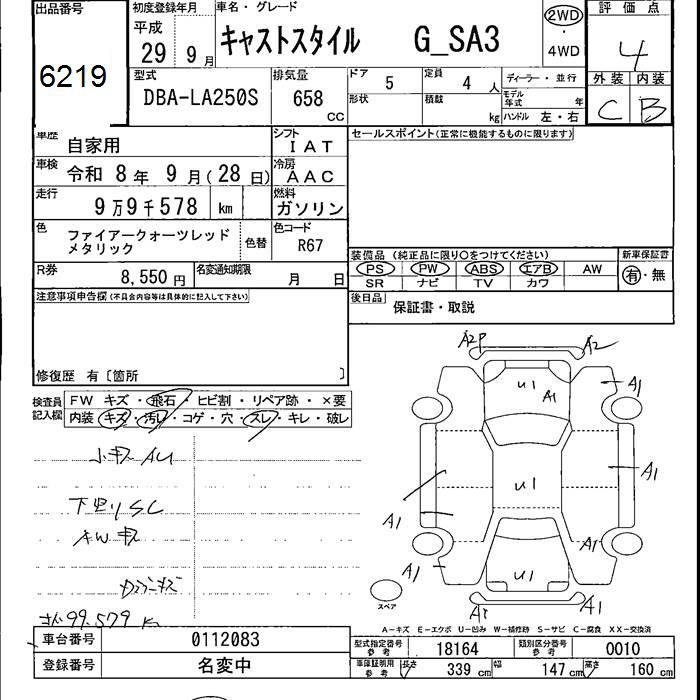 出品番号 初度登録年月 車名・グレード 評価点
平成 キャストスタイル G_SA3 2WD 4
29 9月 4WD
6219 型式 排気量 ドア 5 定員 4人 ディーラー・並行 外装 内装
DBA-LA250S 658 CC 形状 積載 kg モデル年式 年 ハンドル 左・右 C B
車歴 自家用 シフト IAT セールスポイント(正常に機能するものに限ります)
車検 令和 8年 9月(28日) 冷房 AAC
走行 9万9千578 km 燃料 ガソリン
色 ファイアークォーツレッド 色替 色コード
メタリック R67
装備品 (純正品に限り○をつけてください) 新車保証書
R券 8,550円 名変通知期限 月 日 PS PW ABS エアB AW 有・無
SR ナビ TV カワ
注意事項申告欄(不具合内容等は具体的に記入して下さい) 後日品 保証書・取説
修復歴 有〔箇所 〕
A2P A2
検査員 FW キズ・飛石・ヒビ割・リペア跡・×要
記入欄 内装 キズ・汚レ・コゲ・穴・スレ・キレ・破レ
U1 A1 A1
小キズ AU
U1 A1
下廻りSC
AWキズ A1 A1
A1 U1
99,579 K
スペア A1 A1
A-キズ E-エクボ U-凹み W-補修跡 S-サビ C-腐食 XX-交換済
車台番号 0112083 型式指定番号 参考 18164 類別区分番号 参考 0010
登録番号 名変中 車庫証明用 参考 長さ 339cm 幅 147cm 高さ 160cm